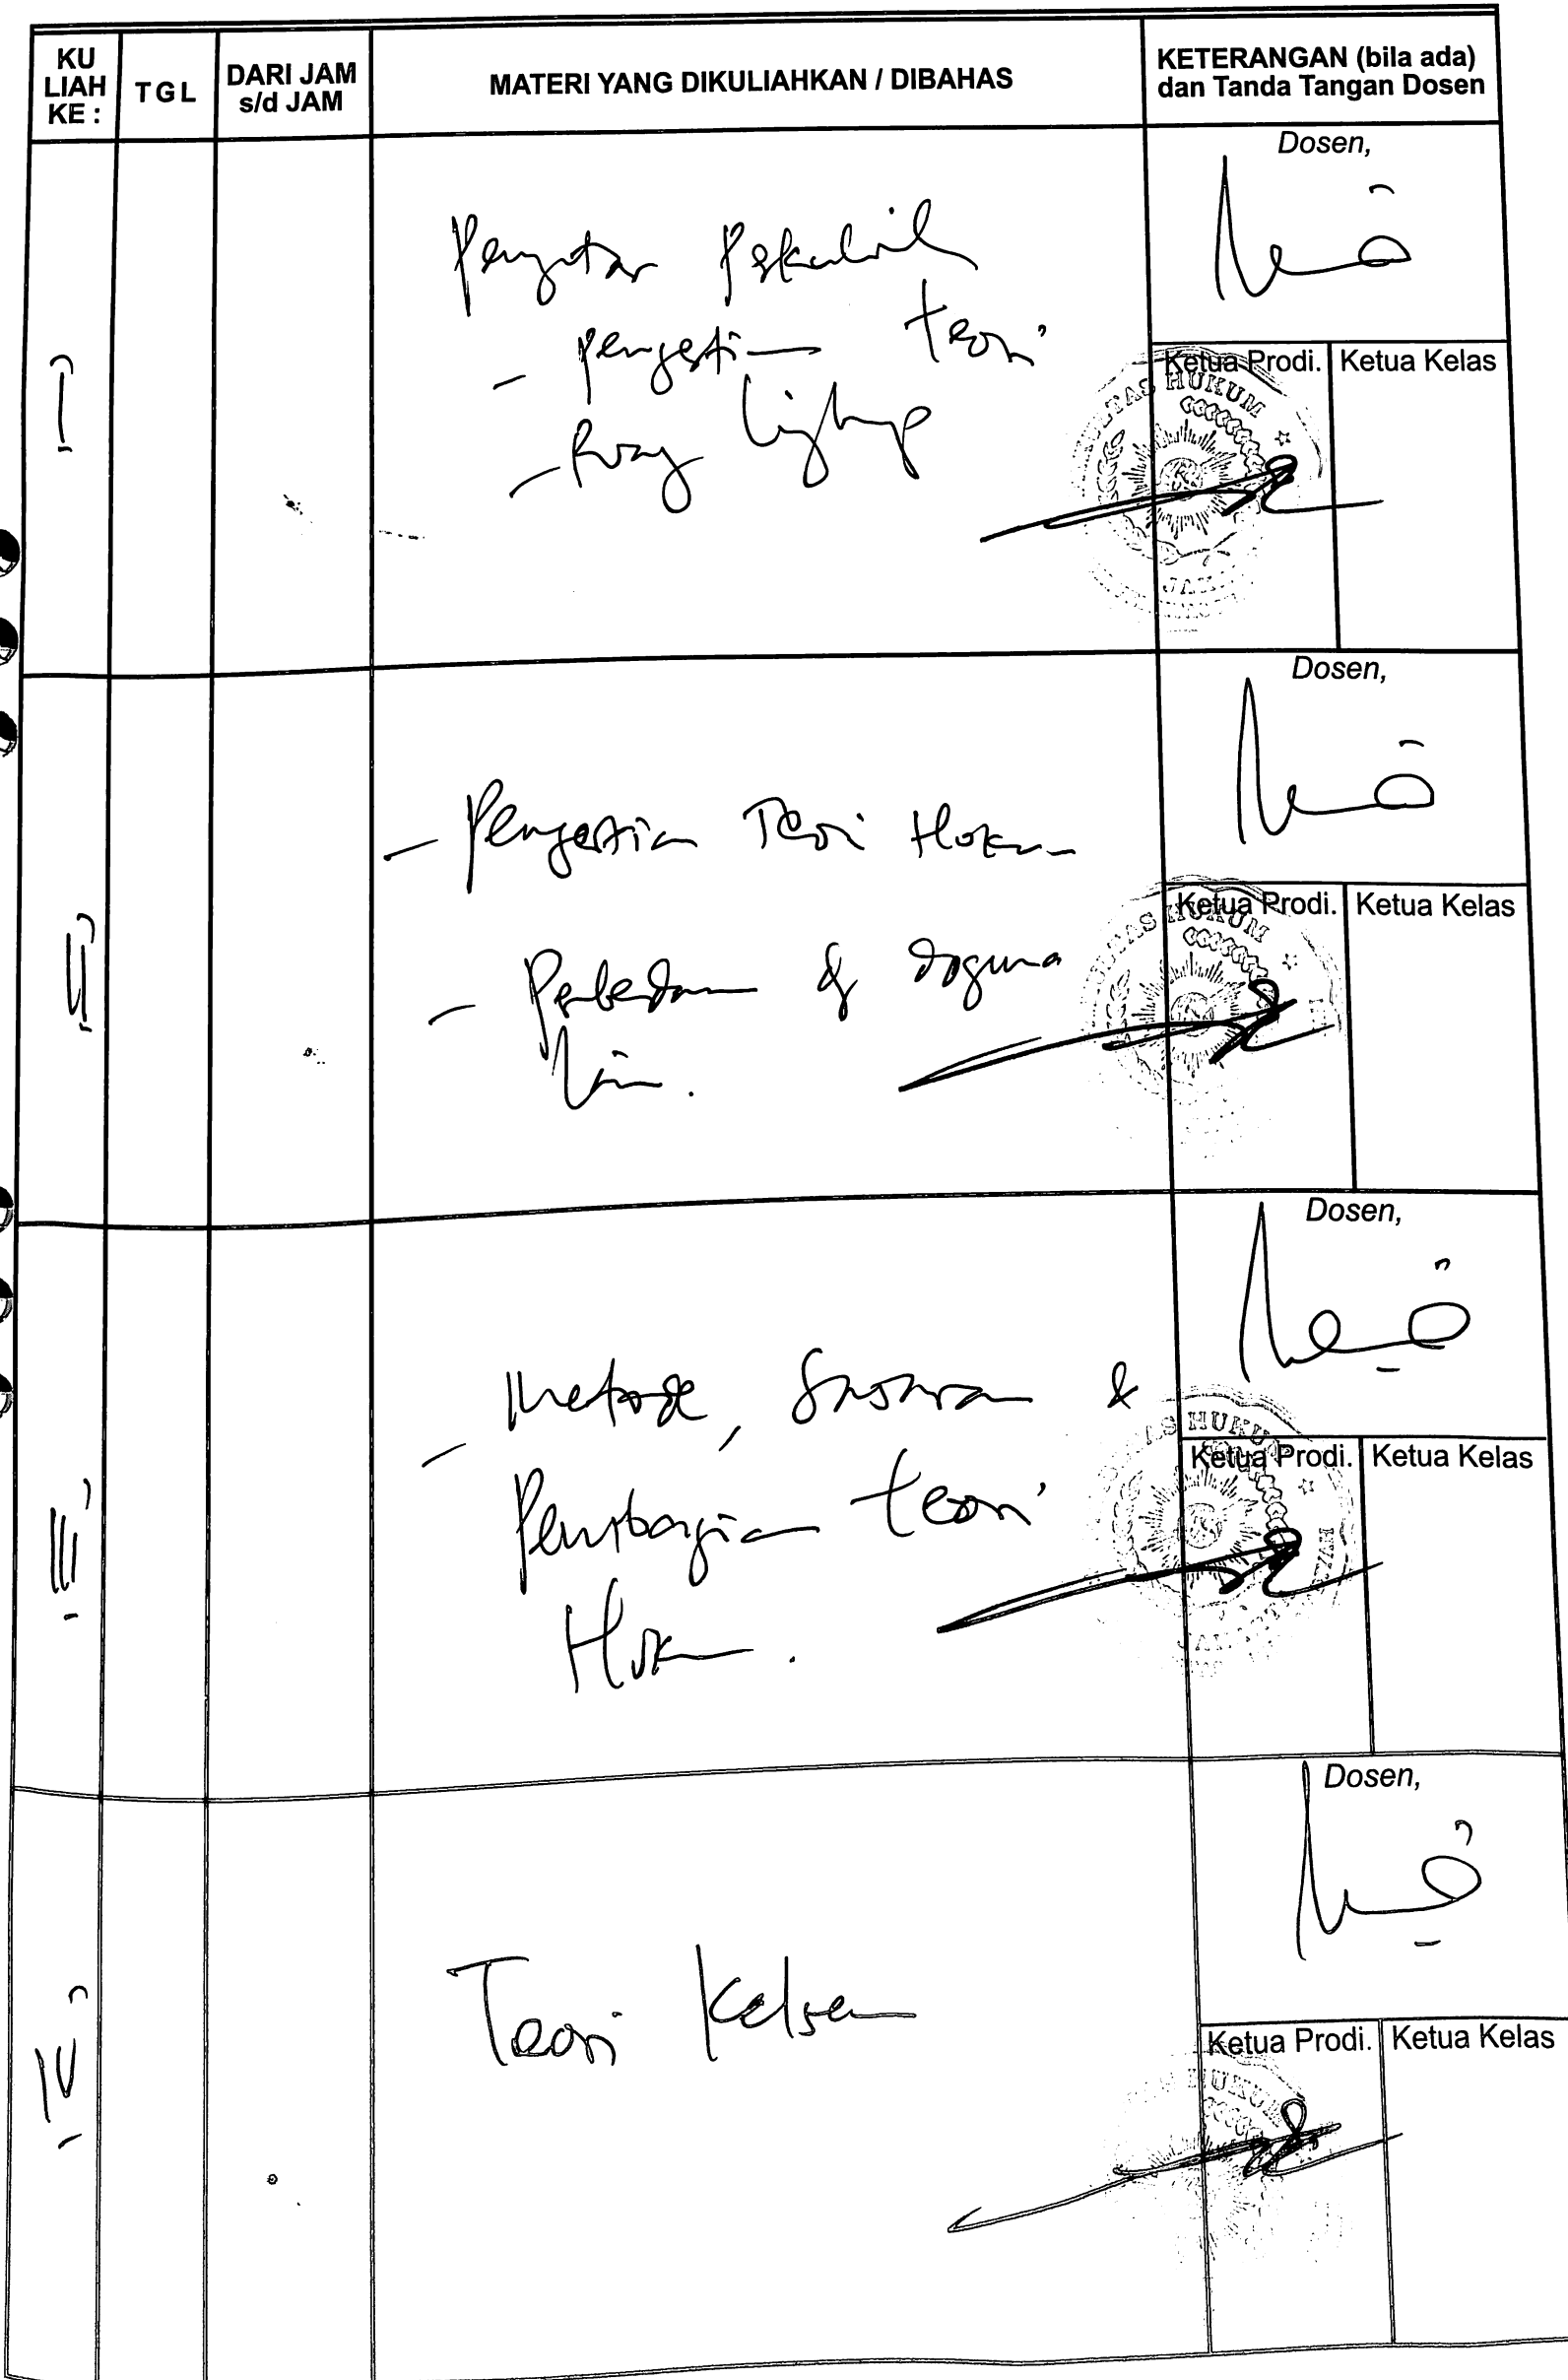 KU LIAH KE :
TGL
DARI JAM s/d JAM
MATERI YANG DIKULIAHKAN / DIBAHAS
KETERANGAN (bila ada) dan Tanda Tangan Dosen
I
Pengantar Perkuliah
- pengertian teori
- Ruang lingkup
Dosen,
Ketua Prodi.
Ketua Kelas
HUKUM
II
- Pengertian Teori Hukum
- Perbedaan dg dogma
lain.
Dosen,
Ketua Prodi.
Ketua Kelas
HUKUM
III
- Metode, &
Pembagian teori
Hukum.
Dosen,
Ketua Prodi.
Ketua Kelas
IV
Teori Kelsen
Dosen,
Ketua Prodi.
Ketua Kelas